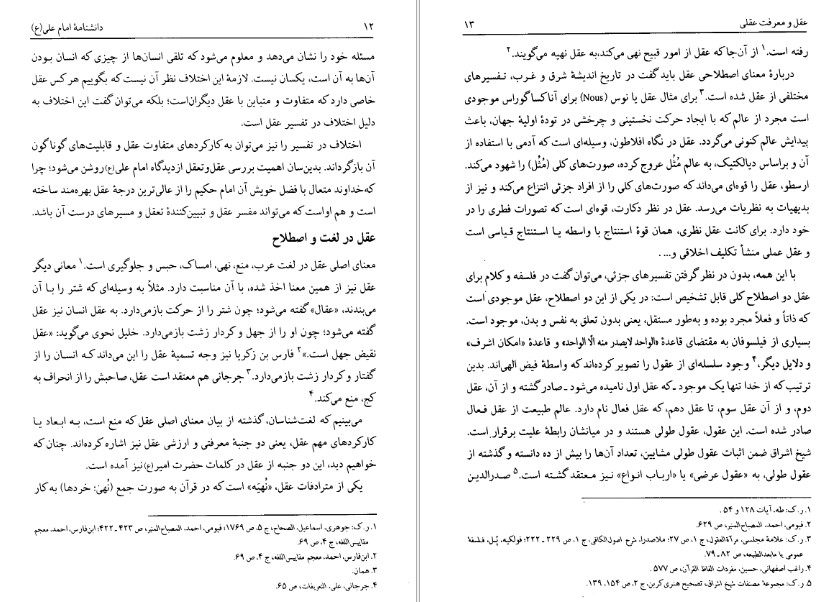 ۱۲ دانشنامهٔ امام علی(ع)
مسئله خود را نشان می‌دهد و معلوم می‌شود که تلقی انسان‌ها از چیزی که انسان بودن
آن‌ها به آن است، یکسان نیست. لازمهٔ این اختلاف نظر آن نیست که بگوییم هر کس عقل
خاصی دارد که متفاوت و متباین با عقل دیگران‌است؛ بلکه می‌توان گفت این اختلاف به
دلیل اختلاف در تفسیر عقل است.
اختلاف در تفسیر را نیز می‌توان به کارکردهای متفاوت عقل و قابلیت‌های گوناگون
آن بازگرداند. بدین‌سان اهمیت بررسی عقل‌وتعقل ازدیدگاه امام علی(ع)روشن می‌شود؛ چرا
که‌خداوند متعال با فضل خویش آن امام حکیم را از عالی‌ترین درجهٔ عقل بهره‌مند ساخته
است و هم اواست‌که می‌تواند مفسر عقل و تبیین‌کنندهٔ تعقل و مسیرهای درست آن باشد.
عقل در لغت و اصطلاح
معنای اصلی عقل در لغت عرب، منع، نهی، امساک، حبس و جلوگیری است.۱ معانی دیگر
عقل نیز از همین معنا اخذ شده، با آن مناسبت دارد. مثلاً به وسیله‌ای که شتر را با آن
می‌بندند، «عقال» گفته می‌شود؛ چون شتر را از حرکت بازمی‌دارد. به عقل انسان نیز عقل
گفته می‌شود؛ چون او را از جهل و کردار زشت بازمی‌دارد. خلیل نحوی می‌گوید: «عقل
نقیض جهل است.»۲ فارس بن زکریا نیز وجه تسمیهٔ عقل را این می‌داند که انسان را از
گفتار و کردار زشت بازمی‌دارد.۳ جرجانی هم معتقد است عقل، صاحبش را از انحراف به
کج، منع می‌کند.۴
می‌بینیم که لغت‌شناسان، گذشته از بیان معنای اصلی عقل که منع است، به ابعاد یا
کارکردهای مهم عقل، یعنی دو جنبهٔ معرفتی و ارزشی عقل نیز اشاره کرده‌اند. چنان که
خواهیم دید، این دو جنبه از عقل در کلمات حضرت امیر(ع) نیز آمده است.
یکی از مترادفات عقل، «نُهیَه» است که در قرآن به صورت جمع (نُهیٰ: خردها) به کار
۱. ر.ک: جوهری، اسماعیل، الصحاح، ج ۵، ص ۱۷۶۹؛ فیومی، احمد، المصباح‌المنیر، ص ۴۲۳ ـ ۴۲۲؛ ابن‌فارس، احمد، معجم
مقاییس‌اللغه، ج ۴، ص ۶۹.
۲. ابن‌فارس، احمد، معجم مقاییس‌اللغه، ج ۴، ص ۶۹.
۳. همان.
۴. جرجانی، علی، التعریفات، ص ۶۵.
عقل و معرفت عقلی ۱۳
رفته است.۱ از آن‌جا که عقل از امور قبیح نهی می‌کند، به عقل نهیه می‌گویند.۲
دربارهٔ معنای اصطلاحی عقل باید گفت در تاریخ اندیشهٔ شرق و غرب، تفسیرهای
مختلفی از عقل شده است.۳ برای مثال عقل یا نوس (Nous) برای آناکساگوراس موجودی
است مجرد از عالم که با ایجاد حرکت نخستینی و چرخشی در تودهٔ اولیهٔ جهان، باعث
پیدایش عالم کنونی می‌گردد. عقل در نگاه افلاطون، وسیله‌ای است که آدمی با استفاده از
آن و براساس دیالکتیک، به عالم مُثُل عروج کرده، صورت‌های کلی (مُثُل) را شهود می‌کند.
ارسطو، عقل را قوه‌ای می‌داند که صورت‌های کلی را از افراد جزئی انتزاع می‌کند و نیز از
بدیهیات به نظریات می‌رسد. عقل در نظر دکارت، قوه‌ای است که تصورات فطری را در
خود دارد. برای کانت عقل نظری، همان قوهٔ استنتاج با واسطه یا استنتاج قیاسی است
و عقل عملی منشأ تکلیف اخلاقی و....
با این همه، بدون در نظر گرفتن تفسیرهای جزئی، می‌توان گفت در فلسفه و کلام برای
عقل دو اصطلاح کلی قابل تشخیص است: در یکی از این دو اصطلاح، عقل موجودی است
که ذاتاً و فعلاً مجرد بوده و به‌طور مستقل، یعنی بدون تعلق به نفس و بدن، موجود است.
بسیاری از فیلسوفان به مقتضای قاعدهٔ «الواحد لایصدر منه الّا الواحد» و قاعدهٔ «امکان اشرف»
و دلایل دیگر،۴ وجود سلسله‌ای از عقول را تصویر کرده‌اند که واسطهٔ فیض الهی‌اند. بدین
ترتیب که از خدا تنها یک موجود ـ که عقل اول نامیده می‌شود ـ صادر گشته و از آن، عقل
دوم، و از آن عقل سوم، تا عقل دهم، که عقل فعال نام دارد. عالم طبیعت از عقل فعال
صادر شده است. این عقول، عقول طولی هستند و در میانشان رابطهٔ علیت برقرار است.
شیخ اشراق ضمن اثبات عقول طولی مشایین، تعداد آن‌ها را بیش از ده دانسته و گذشته از
عقول طولی، به «عقول عرضی» یا «ارباب انواع» نیز معتقد گشته است.۵ صدرالدین
۱. ر.ک: طه، آیات ۱۲۸ و ۵۴.
۲. فیومی، احمد، المصباح‌المنیر، ص ۶۲۹.
۳. ر.ک: علامهٔ مجلسی، مرآةالعقول، ج ۱، ص ۲۷؛ ملاصدرا، شرح اصول‌الکافی، ج ۱، ص ۲۲۹ ـ ۲۲۲؛ فولکیه، پُل، فلسفهٔ
عمومی یا مابعدالطبیعه، ص ۸۲ ـ ۷۹.
۴. راغب اصفهانی، حسین، مفردات الفاظ القرآن، ص ۵۷۷.
۵. ر.ک: مجموعهٔ مصنفات شیخ اشراق، تصحیح هنری کربن، ج ۲، ص ۱۵۴، ۱۳۹.